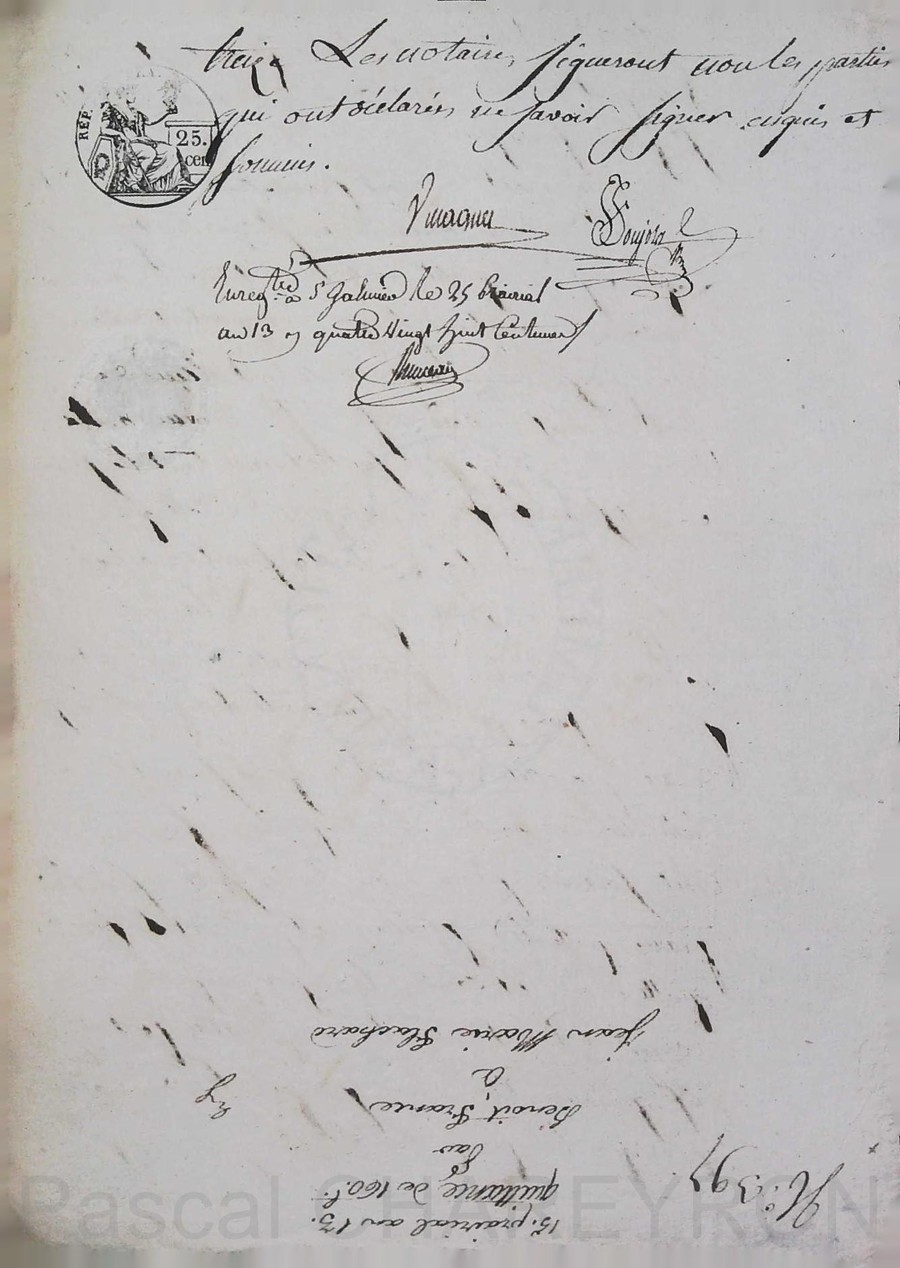 treize Les notaires signeront non les parties
qui ont déclarés ne savoir signer enquis et
sommés.
REP.
25.
cen
Enreg.tré à St Galmier le 25 prairial
an 13 quatre vingt huit Centimes
N.o 397
15. prairial an 13.
quittance de 160.f.
par
Benoit France
à
Jean Marie Flachard
Pascal CHAREYRON